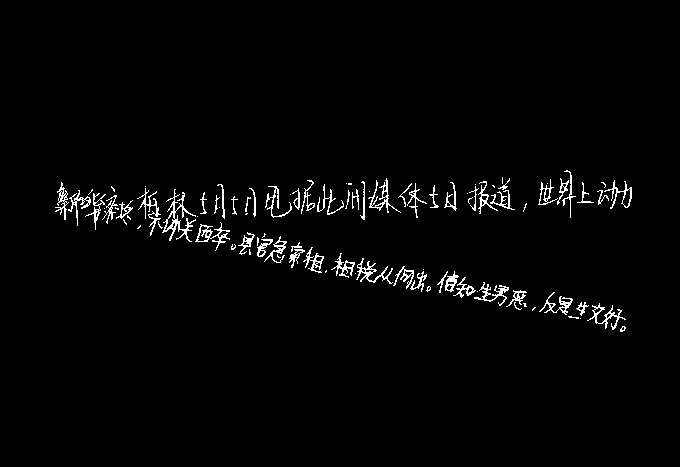 新华社柏林5月5日电据此间媒体5日报道，世界上动力
，未休关西卒。县官急索租，租税从何出。信知生男恶，反是生女好。